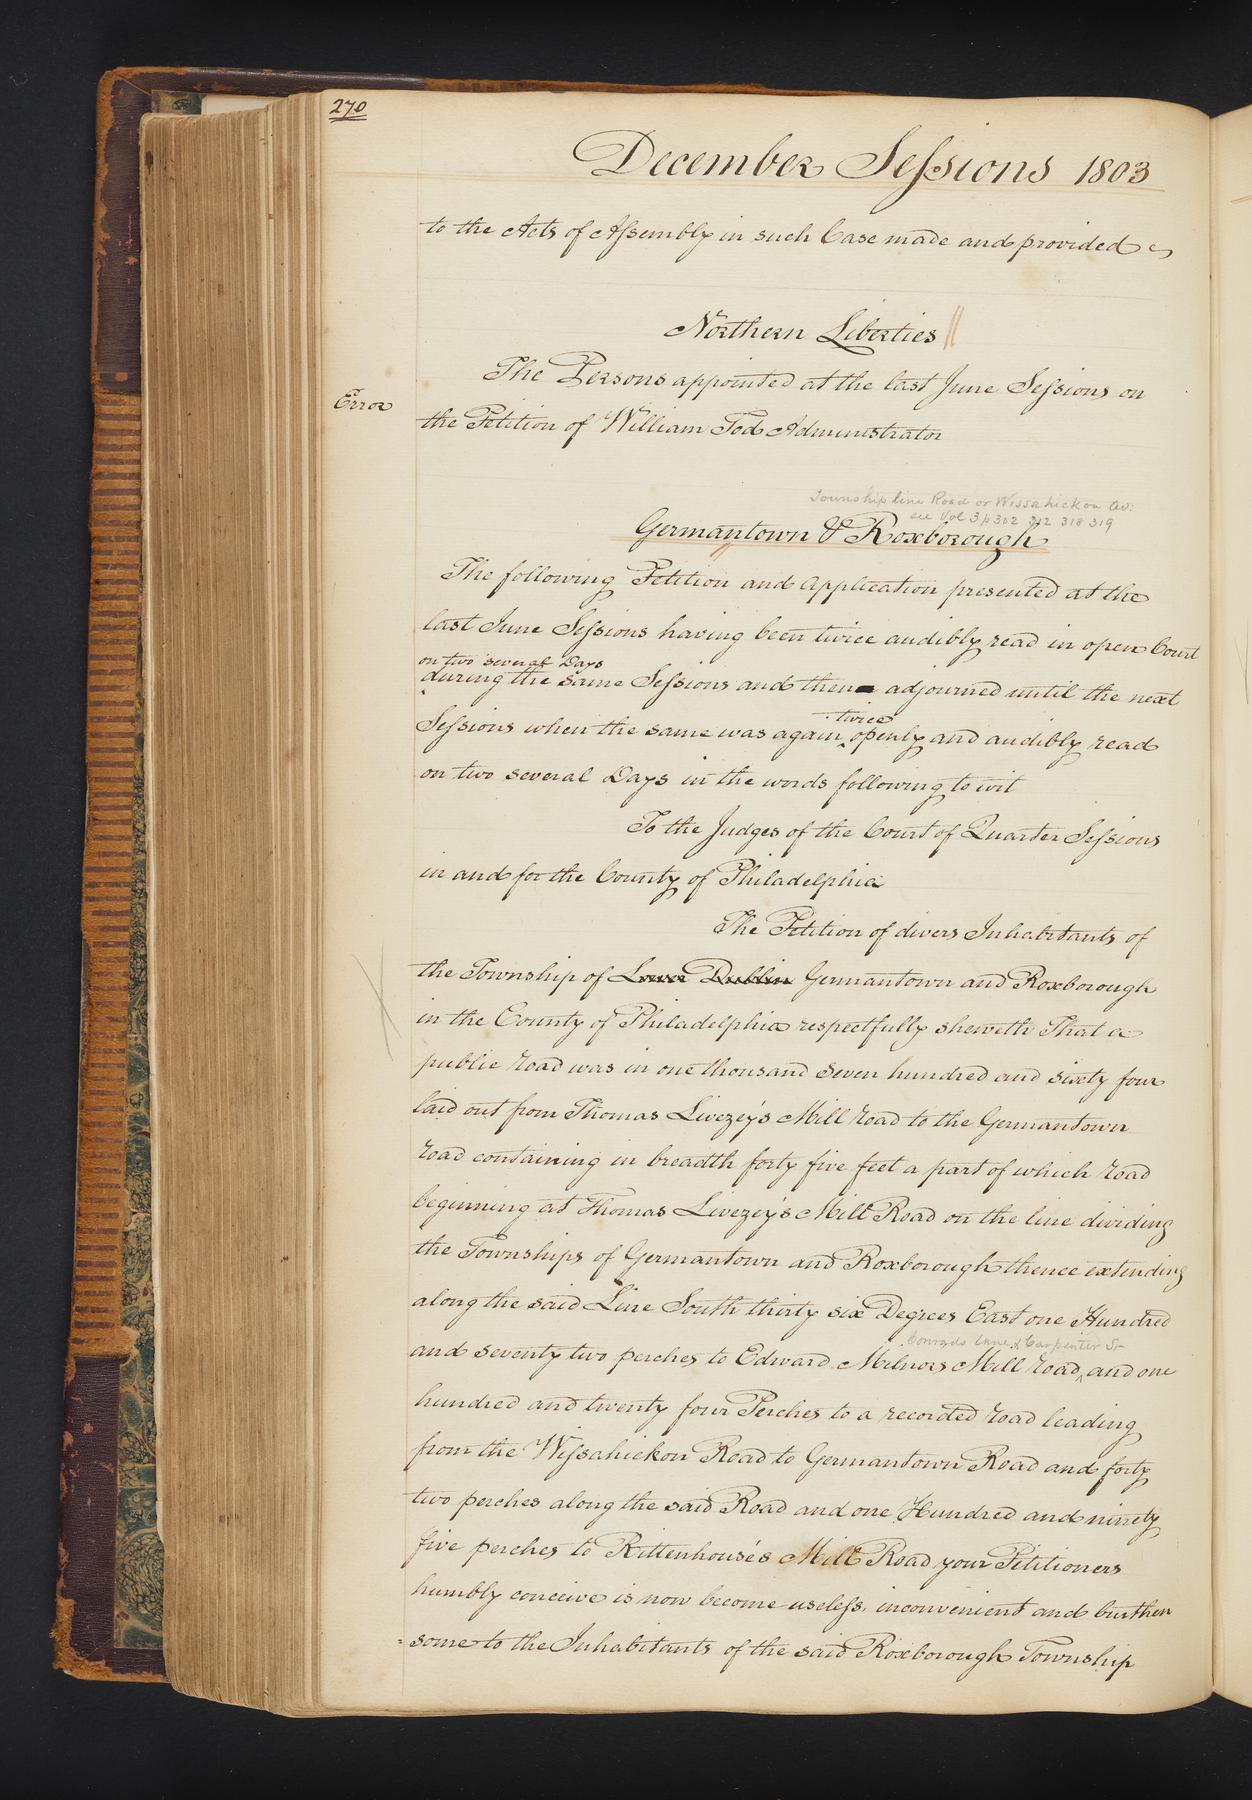 270
December Sessions 1803
to the Acts of Assembly in such Case made and provided
Northern Liberties
The Persons appointed at the last June Sessions on
Error
the Petition of William Tod Administrator
Township line Road or Wissahickon Av:
see Vol 3 p 302 312 318 319
Germantown & Roxborough
The following Petition and Application presented at the
last June Sessions having been twice audibly read in open Court
on two several Days
during the same Sessions and then adjourned until the next
twice
Sessions when the same was again openly and audibly read
on two several Days in the words following to wit
To the Judges of the Court of Quarter Sessions
in and for the County of Philadelphia
The Petition of divers Inhabitants of
the Township of Lower Dublin Germantown and Roxborough
in the County of Philadelphia respectfully sheweth That a
public road was in one thousand seven hundred and sixty four
laid out from Thomas Livezey's Mill road to the Germantown
road containing in breadth forty five feet a part of which road
beginning at Thomas Livezey's Mill Road on the line dividing
the Townships of Germantown and Roxborough thence extending
along the said Line South thirty six Degrees East one Hundred
Conrads lane & Carpenter St
and seventy two perches to Edward Milnors Mill road, and one
hundred and twenty four Perches to a recorded road leading
from the Wissahickon Road to Germantown Road and forty
two perches along the said Road and one Hundred and ninety
five perches to Rittenhouse's Mill Road your Petitioners
humbly conceive is now become useless, inconvenient and burthen
=some to the Inhabitants of the said Roxborough Township